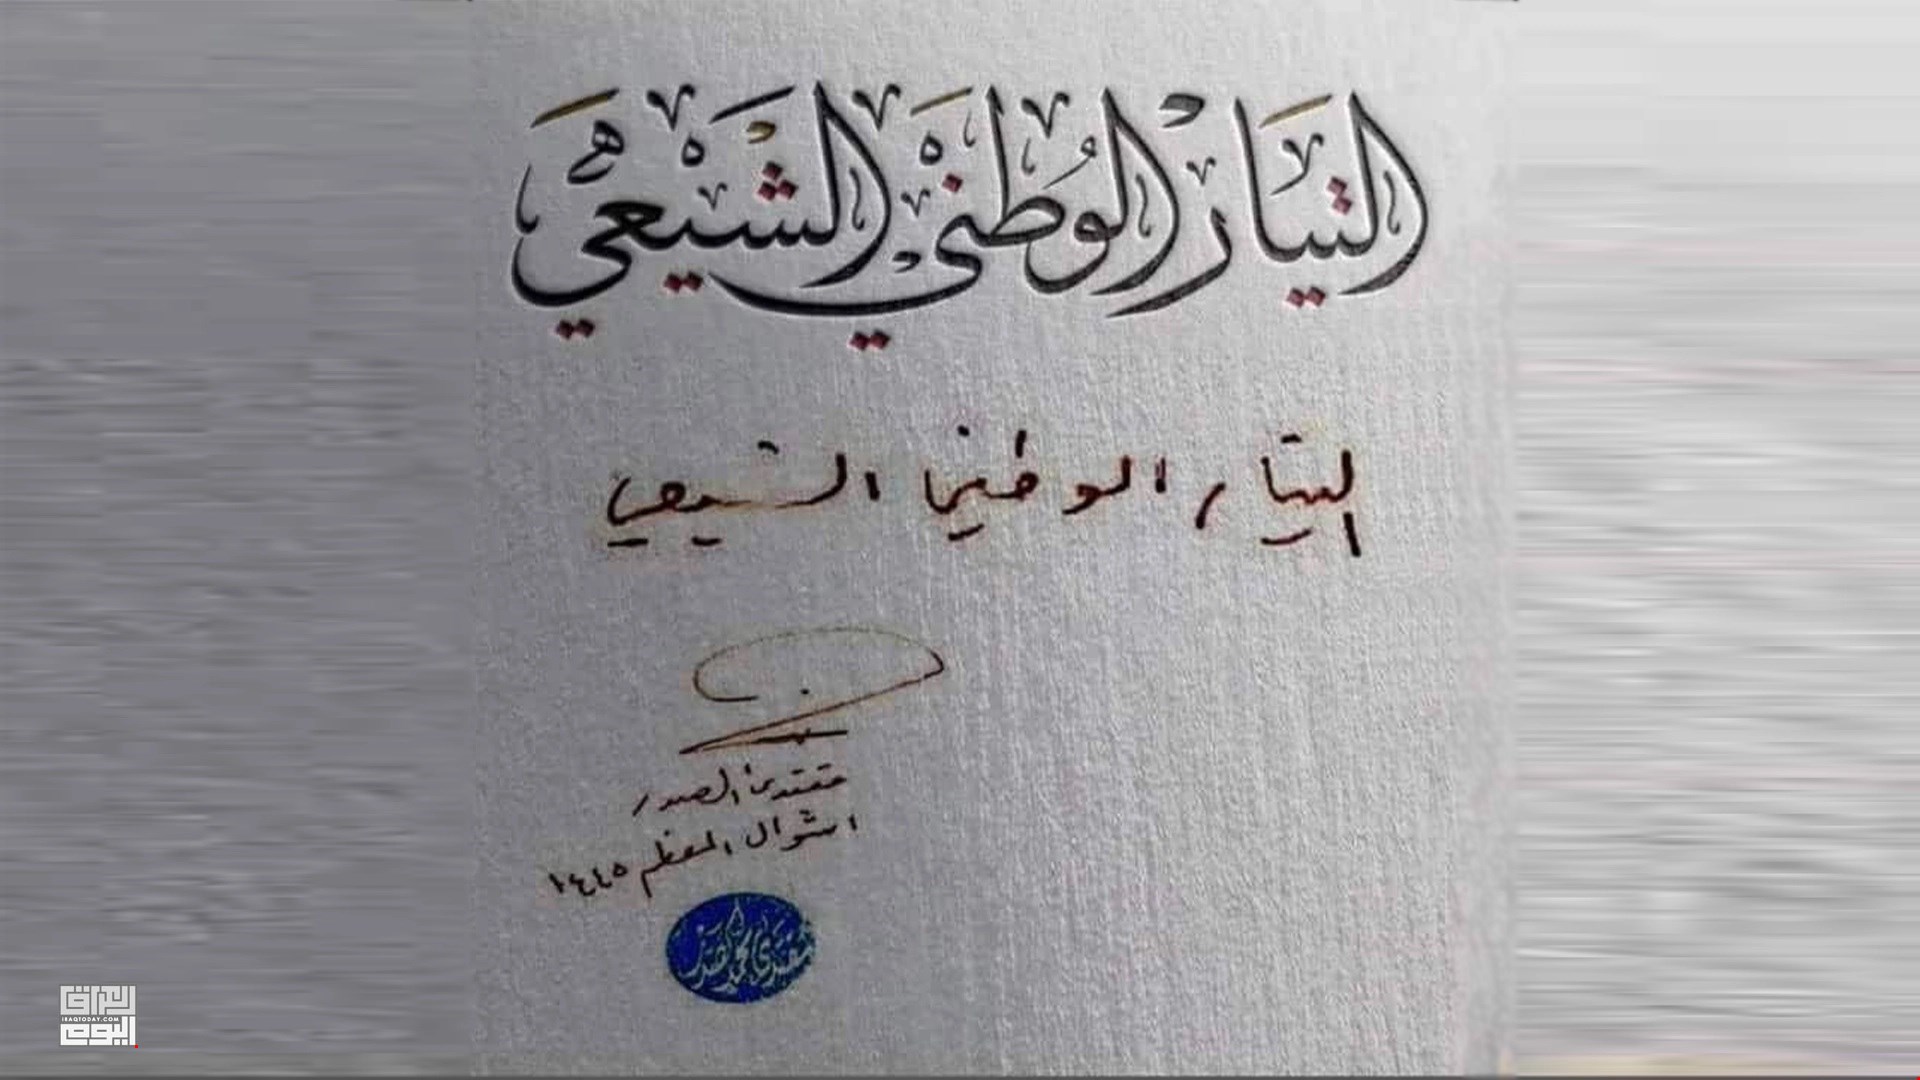 التيار الوطني الشيعي
التيار الوطني الشيعي
مقتدى الصدر
١ شوال المعظم ١٤٤٥
مقتدى محمد الصدر
العراق
IRAQTODAY.COM
اليوم